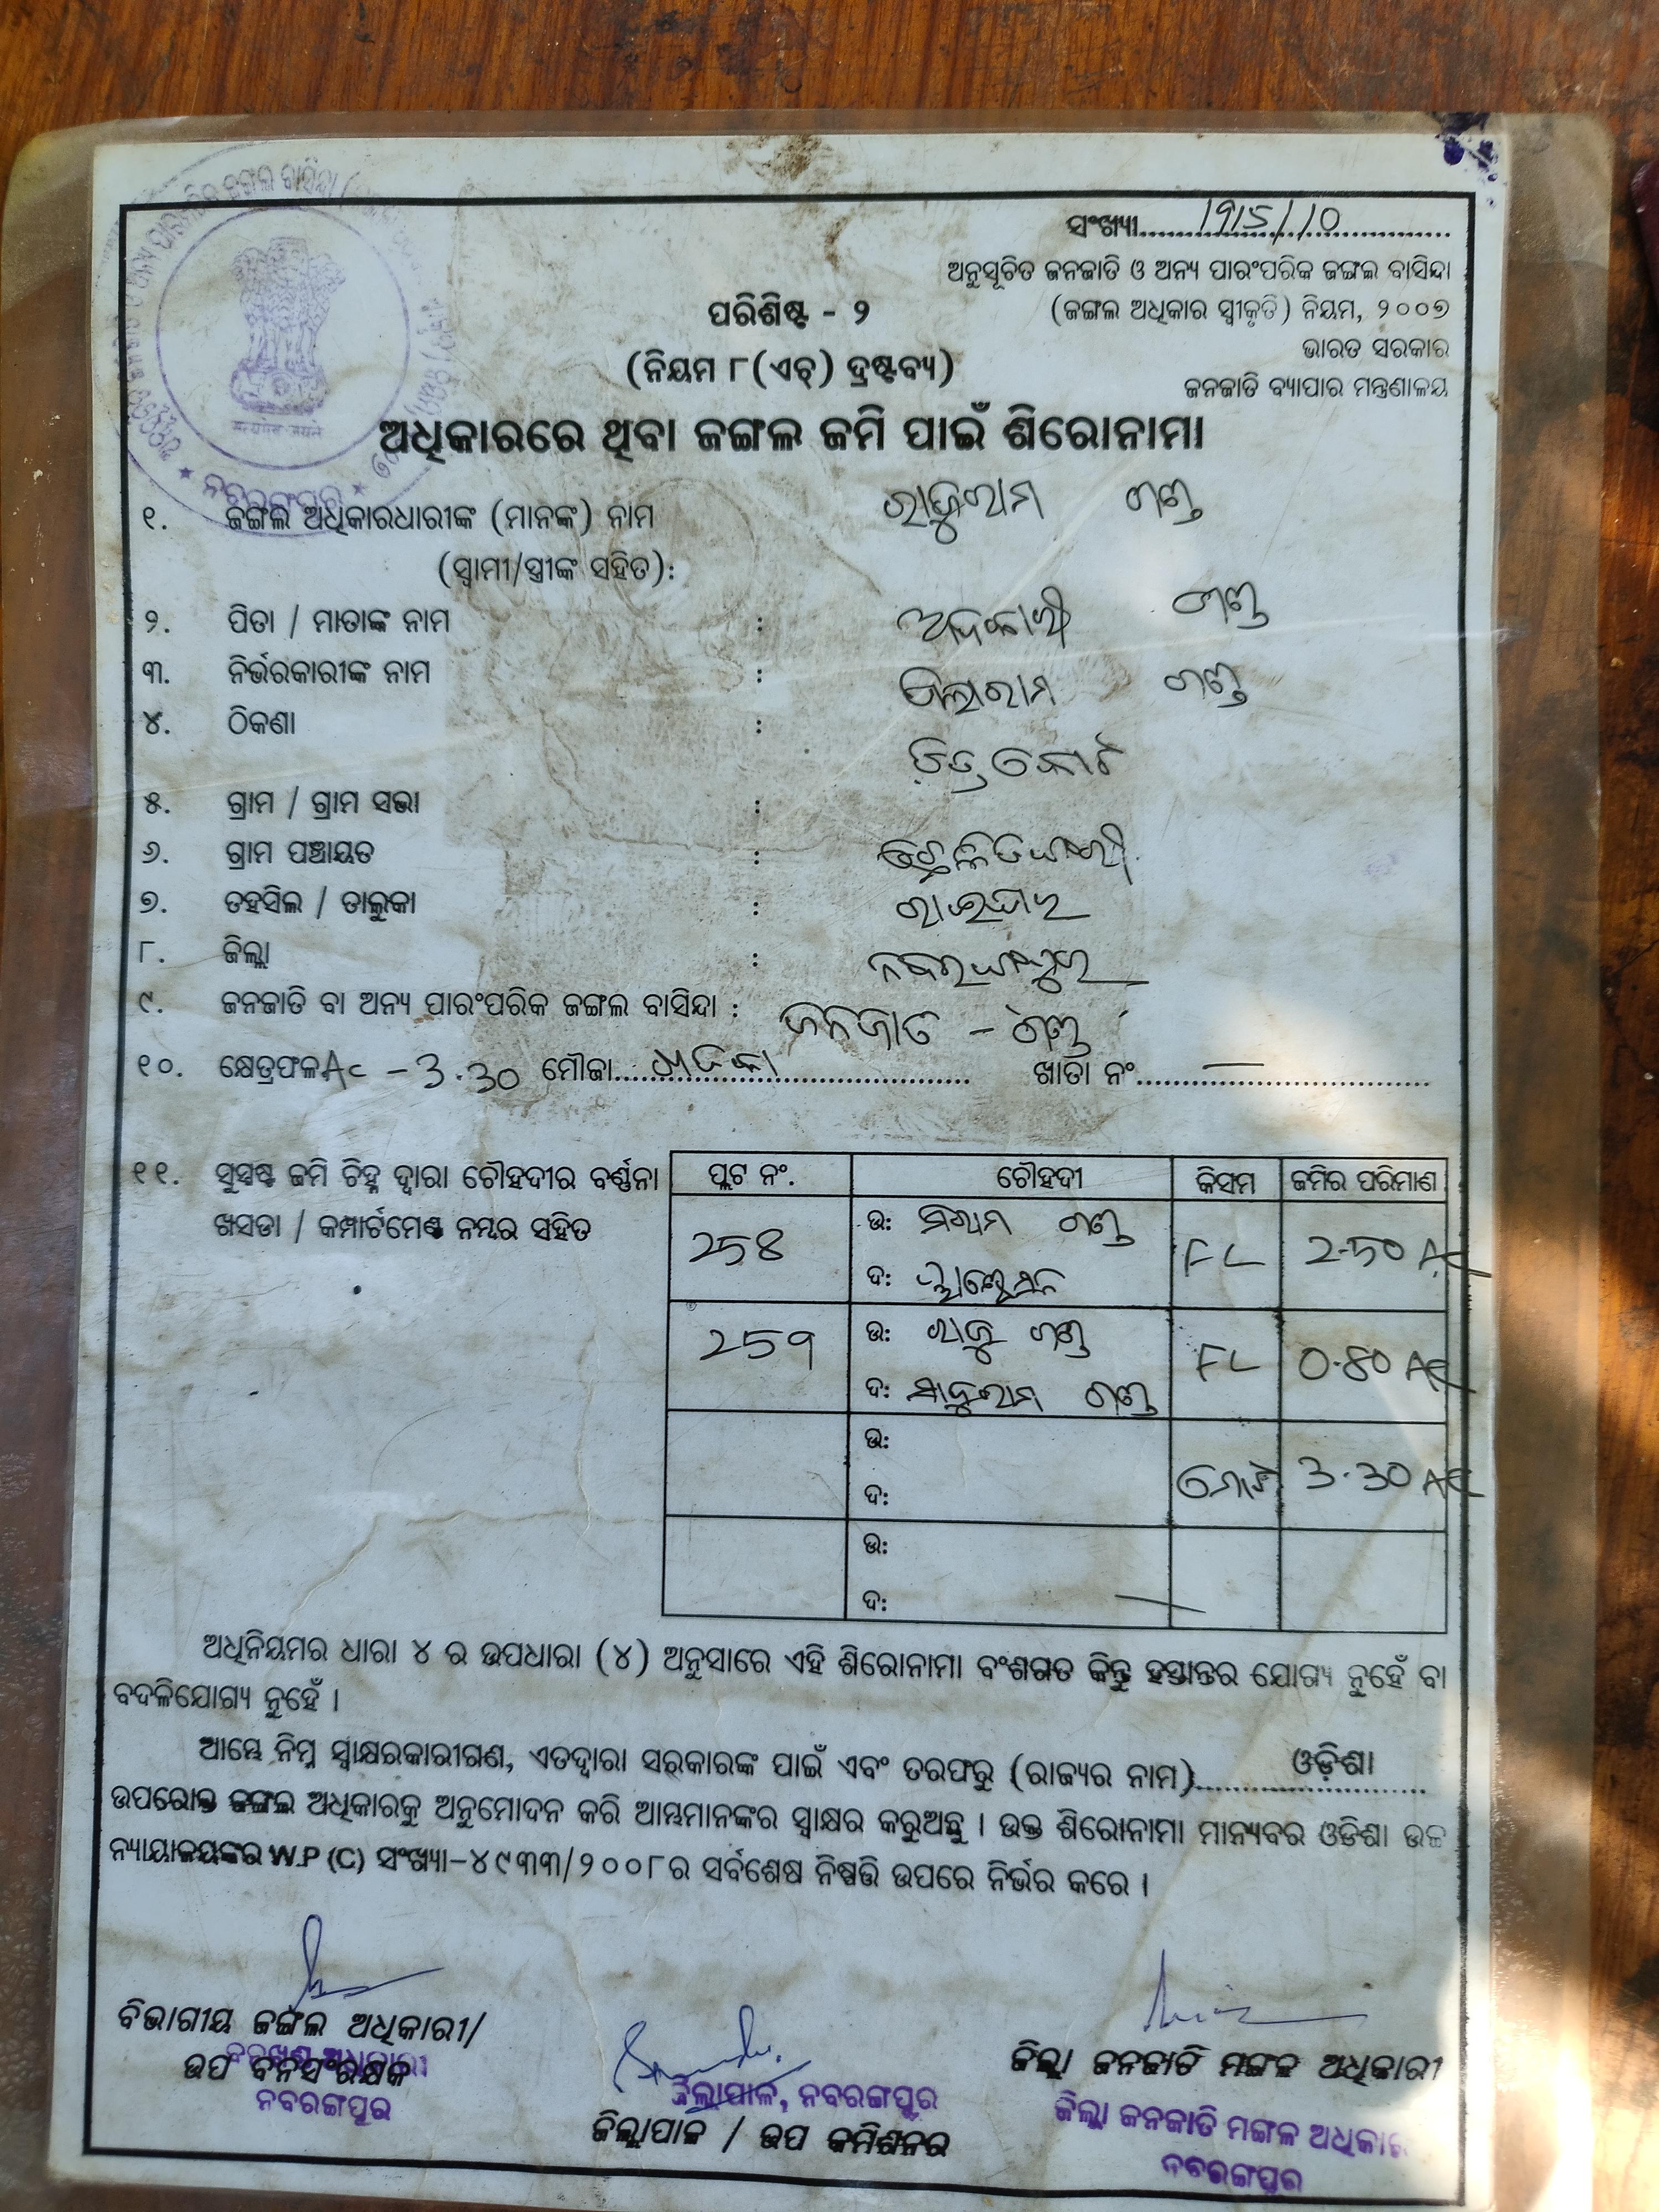 ସଂଖ୍ୟା.....................
ଅନୁସୂଚିତ ଜନଜାତି ଓ ଅନ୍ୟ ପାରଂପରିକ ଜଙ୍ଗଲ ବାସିନ୍ଦା
ପରିଶିଷ୍ଟ - ୨
(ଜଙ୍ଗଲ ଅଧିକାର ସ୍ୱୀକୃତି) ନିୟମ, ୨୦୦୭
ଭାରତ ସରକାର
(ନିୟମ ୮(ଏଚ୍) ଦ୍ରଷ୍ଟବ୍ୟ)
ଜନଜାତି ବ୍ୟାପାର ମନ୍ତ୍ରଣାଳୟ
ଅଧିକାରରେ ଥିବା ଜଙ୍ଗଲ ଜମି ପାଇଁ ଶିରୋନାମା
୧. ଜଙ୍ଗଲ ଅଧିକାରଧାରୀଙ୍କ (ମାନଙ୍କ) ନାମ ରାଜୁରାମ ଗଣ୍ଡ
(ସ୍ୱାମୀ/ସ୍ତ୍ରୀଙ୍କ ସହିତ):
୨. ପିତା / ମାତାଙ୍କ ନାମ : ଗଣ୍ଡ
୩. ନିର୍ଭରକାରୀଙ୍କ ନାମ : ଗଣ୍ଡ
୪. ଠିକଣା :
୫. ଗ୍ରାମ / ଗ୍ରାମ ସଭା :
୬. ଗ୍ରାମ ପଞ୍ଚାୟତ :
୭. ତହସିଲ / ତାଲୁକା : ରାଇଘର
୮. ଜିଲ୍ଲା : ନବରଙ୍ଗପୁର
୯. ଜନଜାତି ବା ଅନ୍ୟ ପାରଂପରିକ ଜଙ୍ଗଲ ବାସିନ୍ଦା : ଜନଜାତି - ଗଣ୍ଡ
୧୦. କ୍ଷେତ୍ରଫଳ Ac - 3.30 ମୌଜା........................ ଖାତା ନଂ........................
୧୧. ସୁସ୍ପଷ୍ଟ ଜମି ଚିହ୍ନ ଦ୍ୱାରା ଚୌହଦୀର ବର୍ଣ୍ଣନା
ଖସଡା / କମ୍ପାର୍ଟମେଣ୍ଟ ନମ୍ବର ସହିତ
ପ୍ଲଟ ନଂ. ଚୌହଦୀ କିସମ ଜମିର ପରିମାଣ
258 ଉ: ଗଣ୍ଡ FL 2.50 Ac
ଦ:
259 ଉ: ରାଜୁ ଗଣ୍ଡ FL 0.80 Ac
ଦ: ଗଣ୍ଡ
ଉ:
ଦ: ମୋଟ 3.30 Ac
ଉ:
ଦ:
ଅଧିନିୟମର ଧାରା ୪ ର ଉପଧାରା (୪) ଅନୁସାରେ ଏହି ଶିରୋନାମା ବଂଶଗତ କିନ୍ତୁ ହସ୍ତାନ୍ତର ଯୋଗ୍ୟ ନୁହେଁ ବା
ବଦଳିଯୋଗ୍ୟ ନୁହେଁ ।
ଆମ୍ଭେ ନିମ୍ନ ସ୍ୱାକ୍ଷରକାରୀଗଣ, ଏତଦ୍ୱାରା ସରକାରଙ୍କ ପାଇଁ ଏବଂ ତରଫରୁ (ରାଜ୍ୟର ନାମ)........ଓଡ଼ିଶା........
ଉପରୋକ୍ତ ଜଙ୍ଗଲ ଅଧିକାରକୁ ଅନୁମୋଦନ କରି ଆମ୍ଭମାନଙ୍କର ସ୍ୱାକ୍ଷର କରୁଅଛୁ । ଉକ୍ତ ଶିରୋନାମା ମାନ୍ୟବର ଓଡିଶା ଉଚ୍ଚ
ନ୍ୟାୟାଳୟଙ୍କର W.P (C) ସଂଖ୍ୟା-୪୯୩୩/୨୦୦୮ର ସର୍ବଶେଷ ନିଷ୍ପତ୍ତି ଉପରେ ନିର୍ଭର କରେ ।
ବିଭାଗୀୟ ଜଙ୍ଗଲ ଅଧିକାରୀ/
ଉପ ବନସଂରକ୍ଷକ
ନବରଙ୍ଗପୁର
ଜିଲ୍ଲାପାଳ, ନବରଙ୍ଗପୁର
ଜିଲ୍ଲାପାଳ / ଉପ କମିଶନର
ଜିଲ୍ଲା ଜନଜାତି ମଙ୍ଗଳ ଅଧିକାରୀ
ଜିଲ୍ଲା ଜନଜାତି ମଙ୍ଗଳ ଅଧିକାରୀ
ନବରଙ୍ଗପୁର